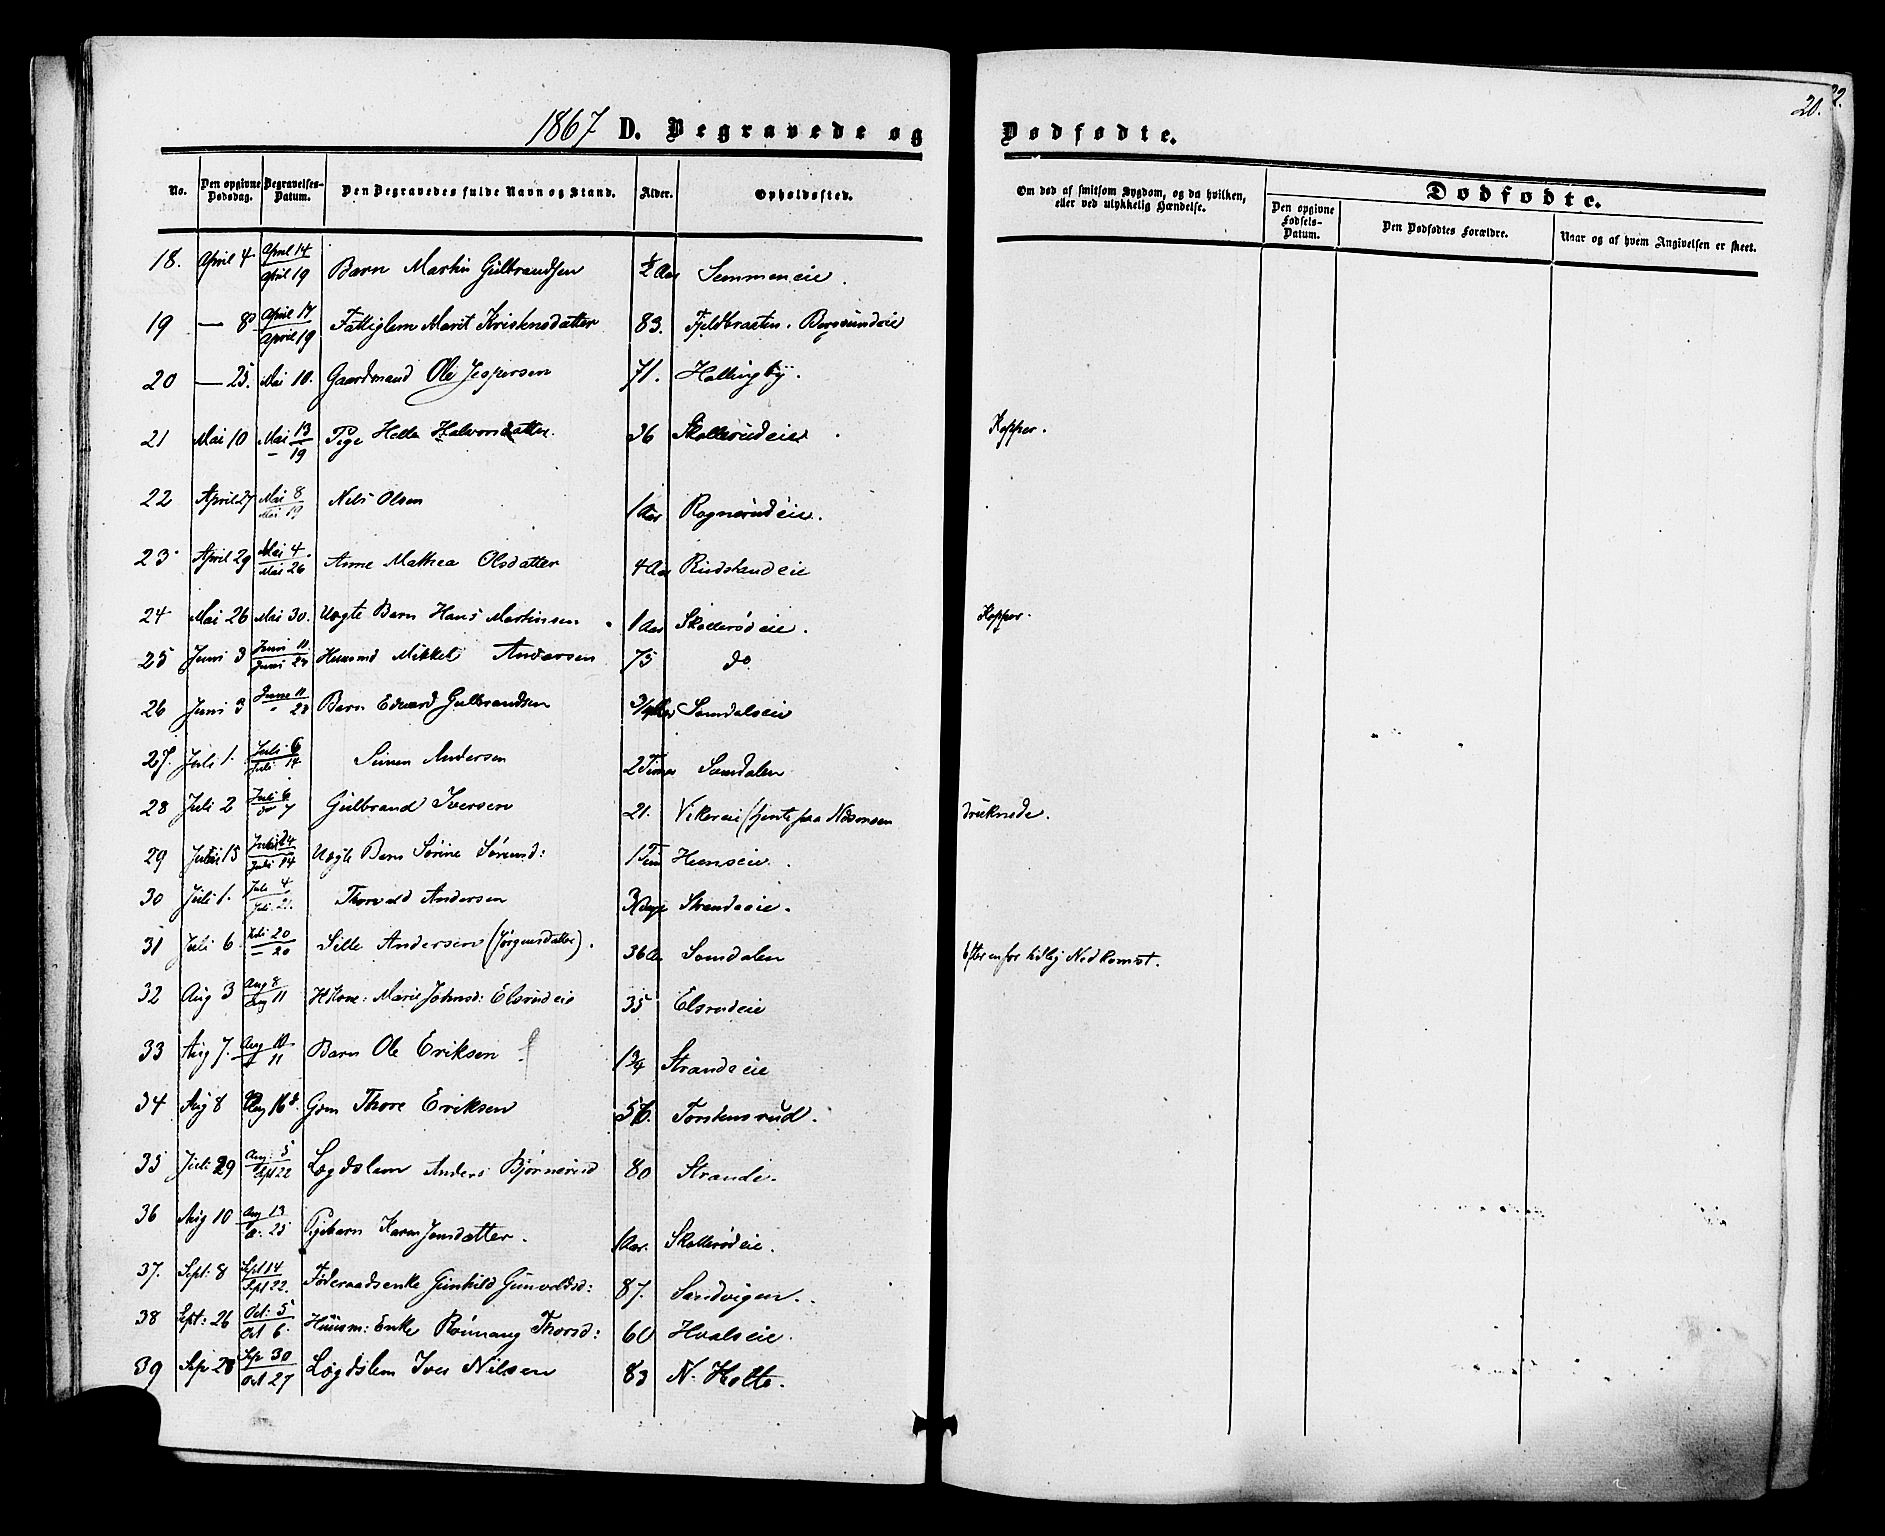 1867 D. Begravede og Dødfødte.
20.
22.
No. Den opgivne Dødsdag. Begravelses-Datum. Den Begravedes fulde Navn og Stand. Alder. Opholdssted. Om død af smitsom Sygdom, og da hvilken, eller ved ulykkelig Hændelse. Dødfødte. Den opgivne Fødsels-Datum. Den Dødfødtes Forældre. Naar og af hvem Angivelsen er skeet.
18. April 4 April 14 April 19 Barn Martin Gulbrandsen ½ Aar Semmeneie.
19 — 8 April 17 April 19 Fattiglem Marit Kristensdatter 83. Fjeldbraaten. Bergsundeie
20 — 25. Mai 10. Gaardmand Ole Jespersen 71. Hallingby.
21 Mai 10 Mai 13 – 19 Pige Helle Halvorsdatter. 36 Skollerudeie. Kopper.
22 April 27 Mai 8 Mai 19 Nils Olsen 1 Aar Rognerudeie.
23 April 29 Mai 4. Mai 26 Anne Mathea Olsdatter 4 Aar Rudstandeie
24 Mai 26 Mai 30. Uægte Barn Hans Martinsen 1 Aar Skollerødeie. Kopper.
25 Juni 3 Juni 11 Juni 23 Huusmd Mikkel Andersen 75 do
26 Juni 3 Juni 11 – 23 Barn Edvard Gulbrandsen 3/4 Aar Samdalseie
27. Juli 1. Juli 6 Juli 14 Simen Andersen 2 Timer Samdalen
28 Juli 2 Juli 6 do 7 Gulbrand Iversen 21. Vikereie druknede.
29 Juli 13 Juli 14 Uægte Barn Sørine Sørensd: 1 Tim Heenseie.
30 Juli 1. Juli 4 Juli 21. Thorvald Andersen 3 Dage Strandeie.
31 Juli 6 Juli 20 – 20 Sille Andersen (Jørgensdatter). 36 A Samdalen Efter en for tidlig Nedkomst.
32 Aug 3 Aug 8 Aug 11 H Kone: Marie Johnsd: Elsrudeie 35 Elsrudeie
33 Aug 7. Aug 10 11 Barn Ole Eriksen 1 3/4 Strandeie
34 Aug 8 Aug 16 Gm Thore Eriksen 56. Torstensrud.
35 Juli 29 Aug: 5 Sept 22 Lægdslem Anders Bjørnerud 80 Strande.
36 Aug 10 Aug 13 25 Pigebarn Karen Jensdatter. 1 Aar. Skollerødeie.
37. Sept: 8 Sept 14 Sept 22. Føderaadsenke Gunhild Gunvoldsd: 87. Sandvigen.
38 Sept: 26 Oct: 5 Oct 6. Huusm: Enke Rønnaug Thorsd: 60 Hvalseie.
39 Sep 23 Sep 30 Oct 27 Lægdslem Iver Nilsen 83 N. Holte.